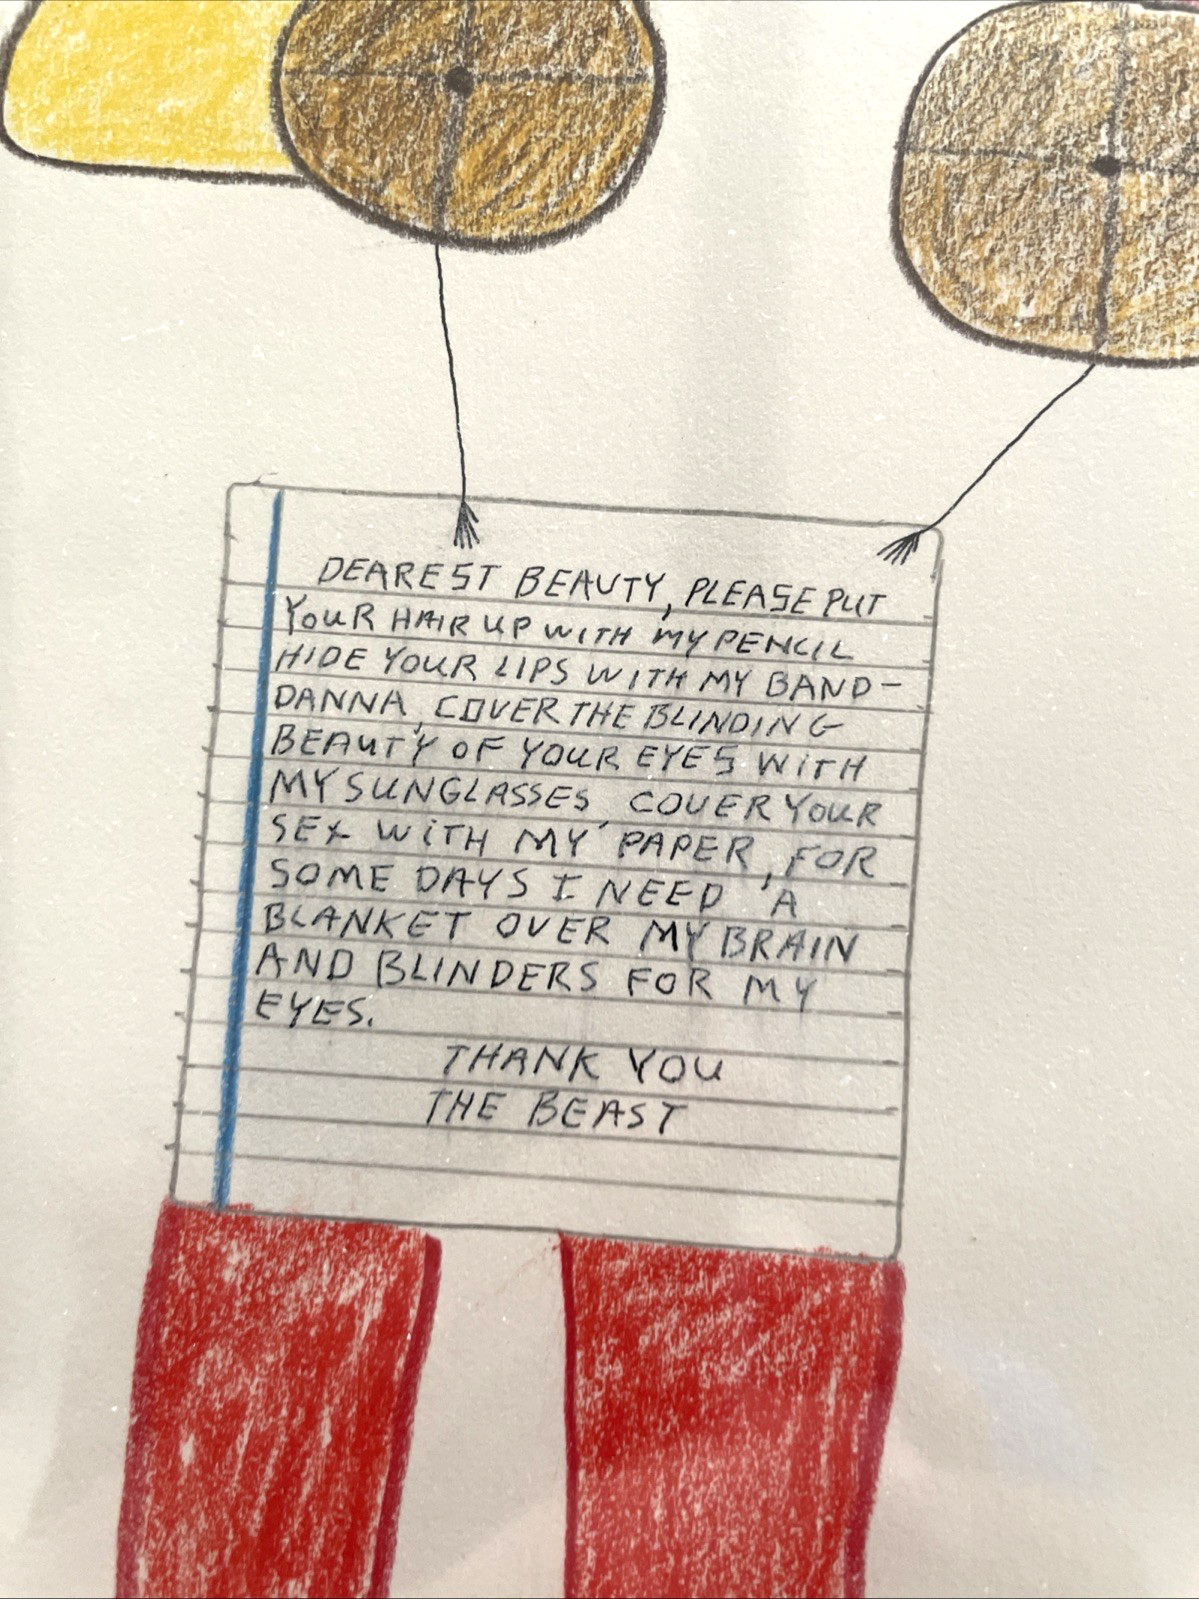 DEAREST BEAUTY, PLEASE PUT
YOUR HAIR UP WITH MY PENCIL
HIDE YOUR LIPS WITH MY BAND-
DANNA, COVER THE BLINDING
BEAUTY OF YOUR EYES WITH
MY SUNGLASSES, COVER YOUR
SEX WITH MY PAPER, FOR
SOME DAYS I NEED A
BLANKET OVER MY BRAIN
AND BLINDERS FOR MY
EYES.
THANK YOU
THE BEAST